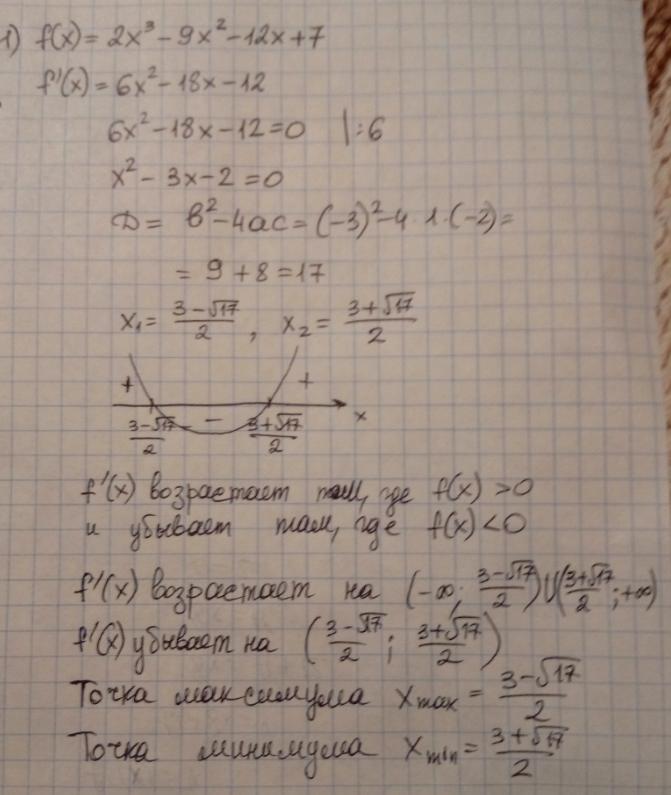 1) f(x) = 2x³ - 9x² - 12x + 7
f'(x) = 6x² - 18x - 12
6x² - 18x - 12 = 0 | : 6
x² - 3x - 2 = 0
D = b² - 4ac = (-3)² - 4 · 1 · (-2) =
= 9 + 8 = 17
x₁ = (3 - √17)/2 , x₂ = (3 + √17)/2
+ - + x
(3 - √17)/2 (3 + √17)/2
f'(x) возрастает там, где f(x) > 0
и убывает там, где f(x) < 0
f'(x) возрастает на (-∞; (3 - √17)/2) ∪ ((3 + √17)/2; +∞)
f'(x) убывает на ((3 - √17)/2; (3 + √17)/2)
Точка максимума xmax = (3 - √17)/2
Точка минимума xmin = (3 + √17)/2